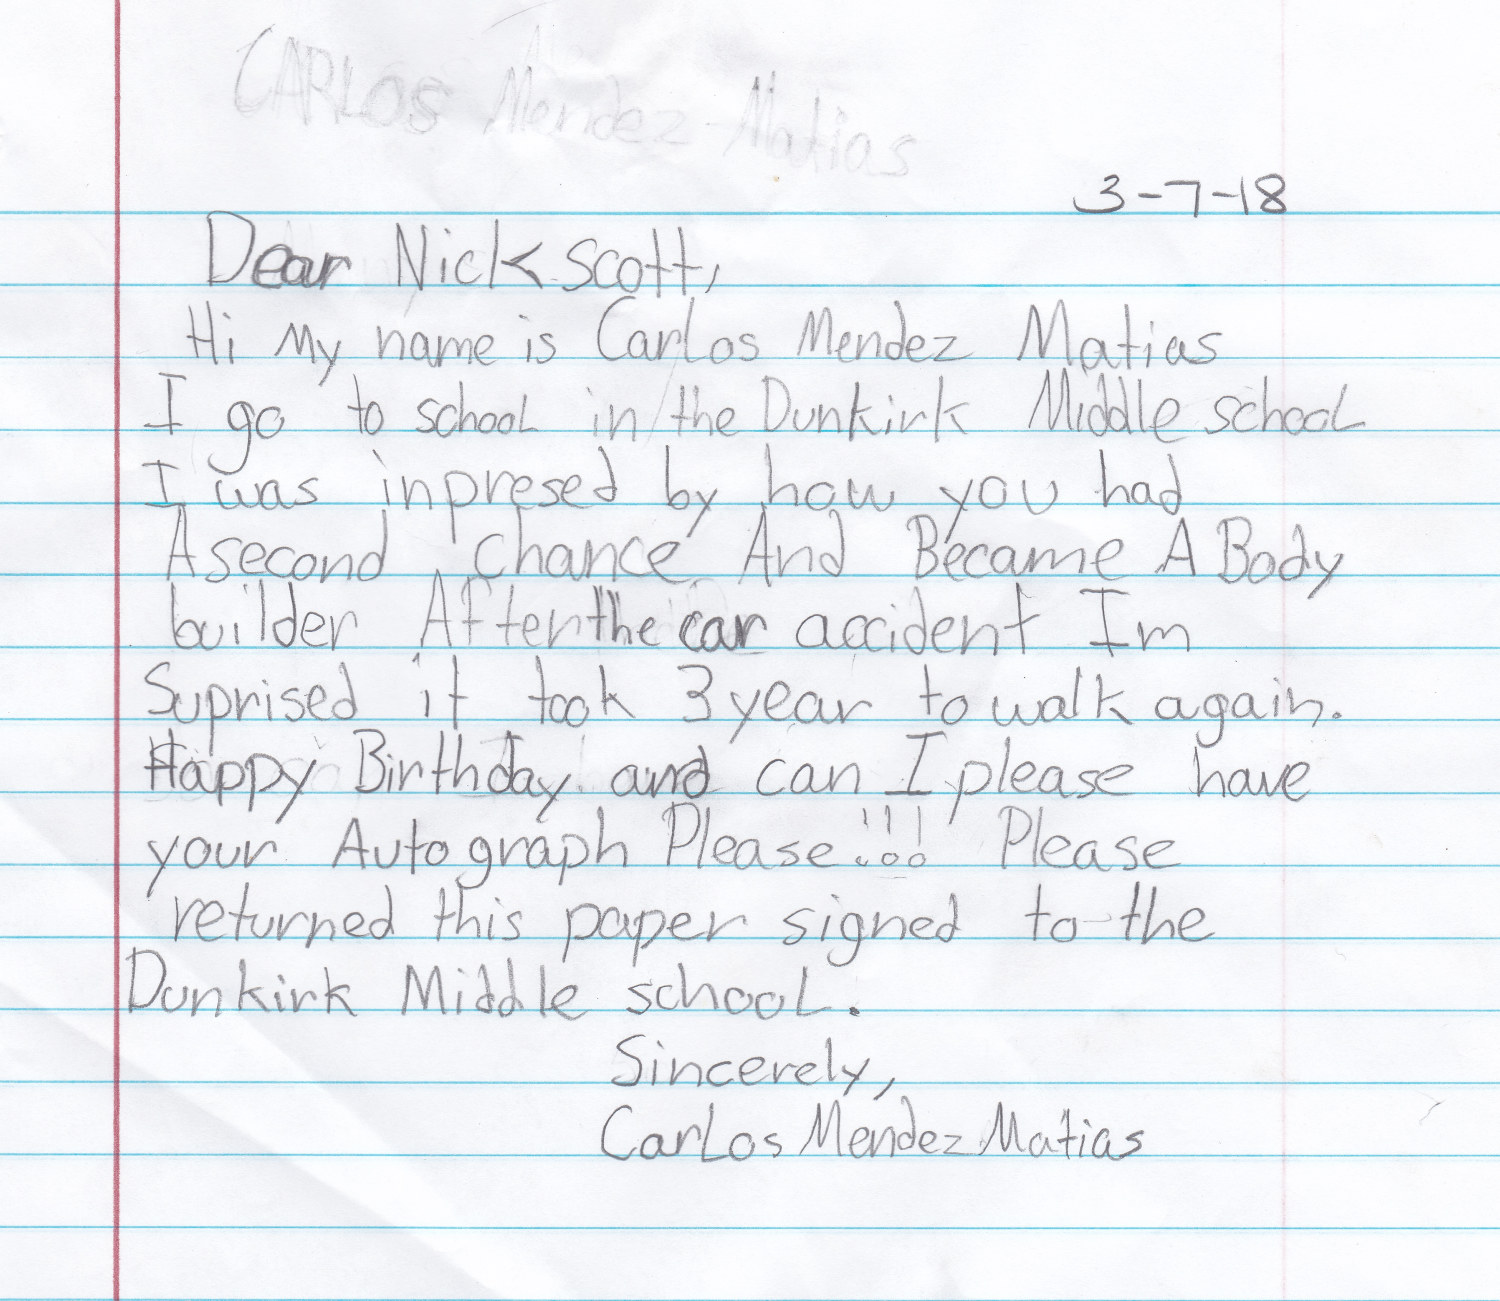 CARLOS Mendez Matias
3-7-18
Dear Nick scott,
Hi My name is Carlos Mendez Matias
I go to school in the Dunkirk Middle school
I was inpresed by how you had
A second chance And Became A Body
builder After the car accident Im
Suprised it took 3 year to walk again.
Happy Birthday and can I please have
your Autograph Please!!! Please
returned this paper signed to the
Dunkirk Middle school.
Sincerely,
Carlos Mendez Matias